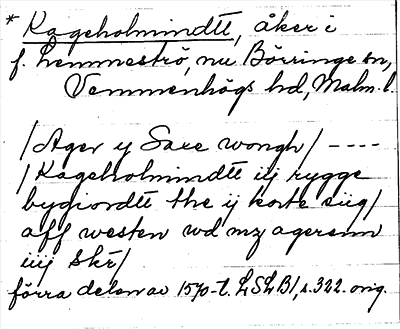 * Kageholmindtt, åker i
f. Lemmeströ, nu Börringe sn,
Vemmenhögs hd, Malm. l.
/Ager y Saxe wongh/ ----
/Kageholmindtt iij rygge
bygiordtt the ij korte siig/
aff westen wd mz agerenn
iiij skr/
förra delen av 1570-t. LSLB1, s. 322. orig.